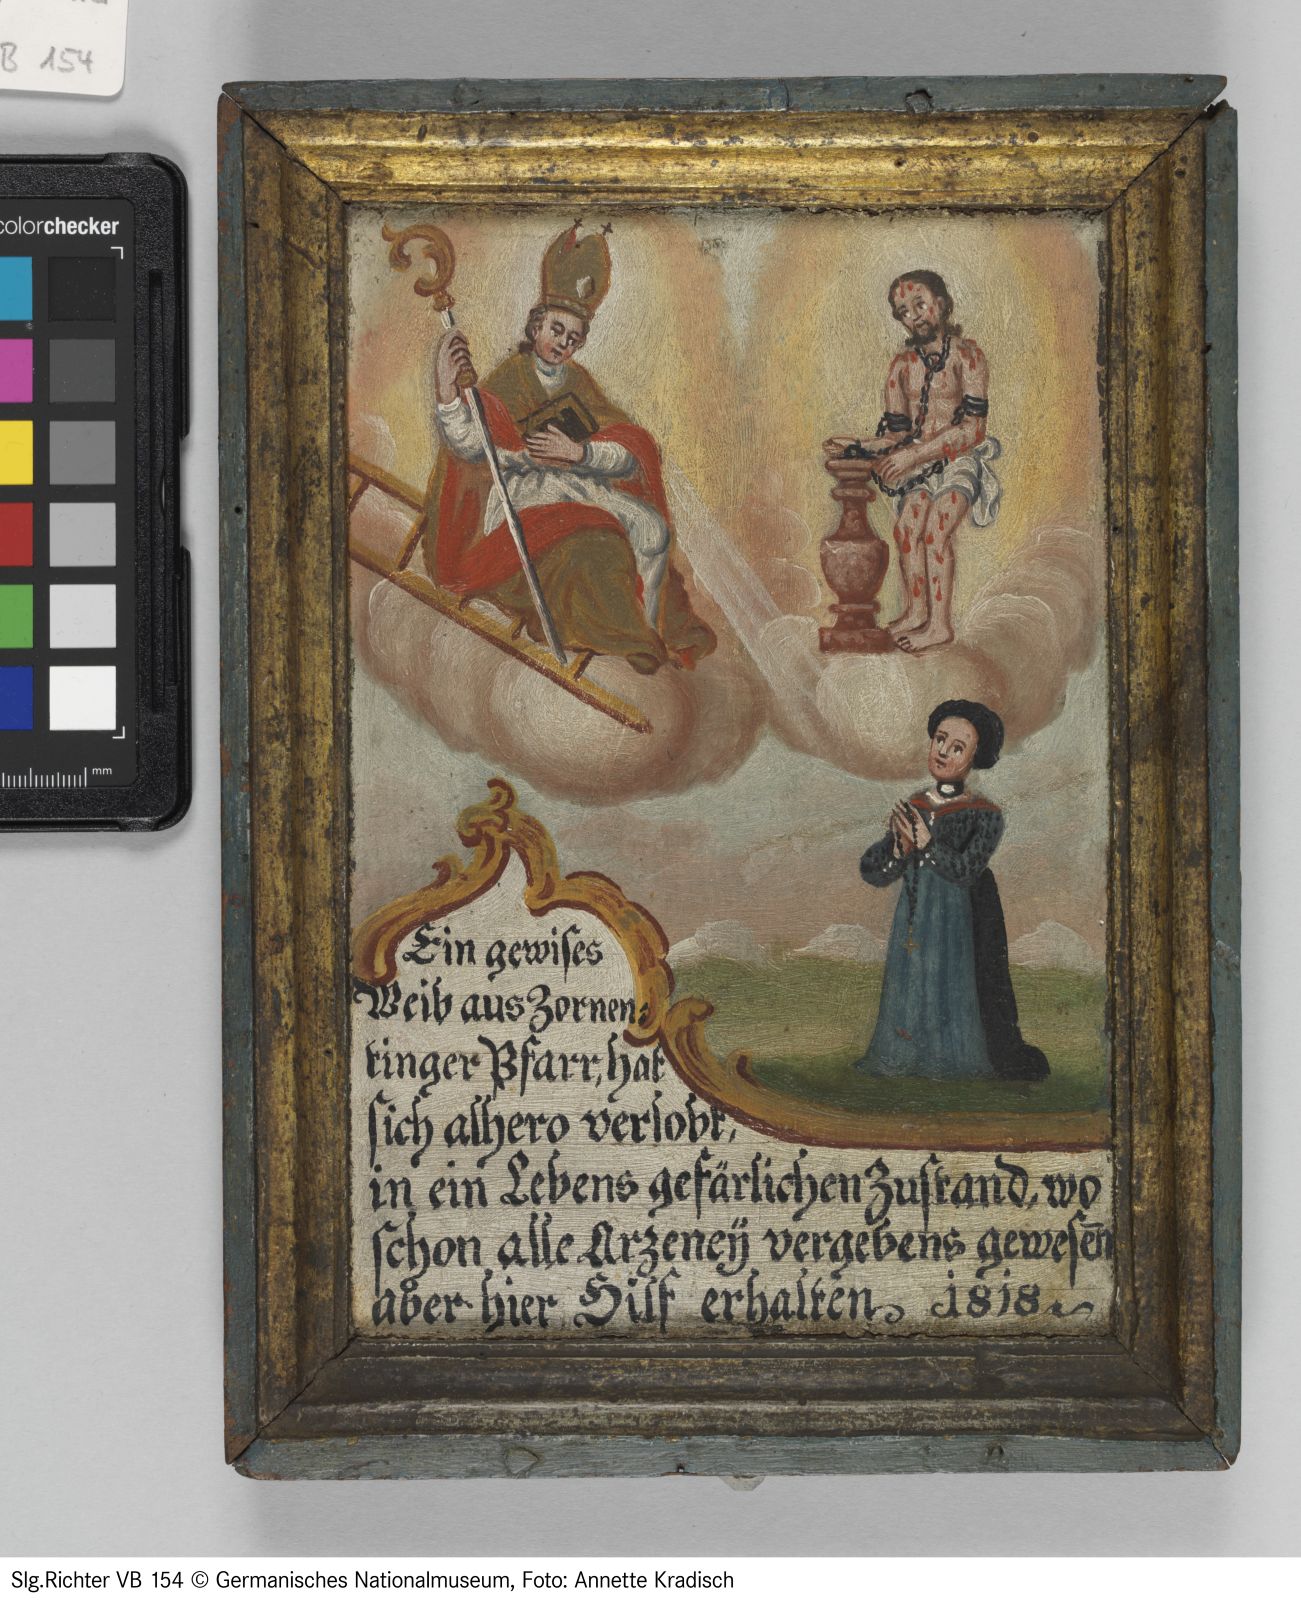 B 154
colorchecker
mm
Ein gewises
Weib aus Zornen⸗
tinger Pfarr, hat
sich alhero verlobt,
in ein Lebens gefärlichen Zustand, wo
schon alle Arzeneÿ vergebens gewesen̄
aber hier Hilf erhalten, 1818
Slg.Richter VB 154 © Germanisches Nationalmuseum, Foto: Annette Kradisch